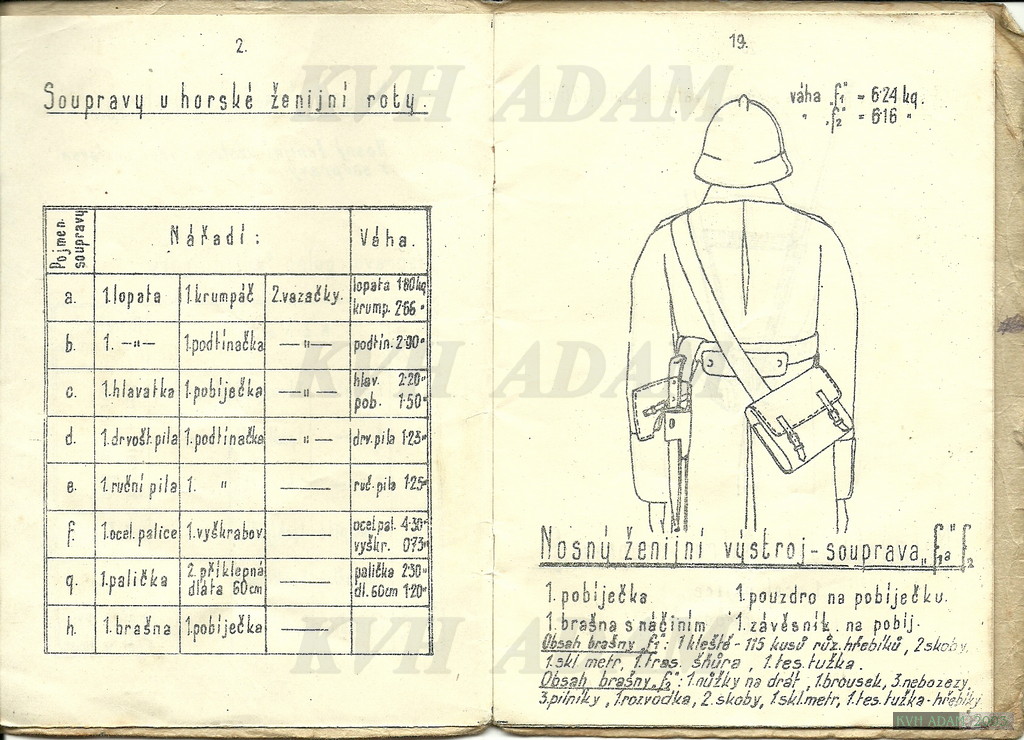 2.
Soupravy u horské ženijní roty.
Pojmen. soupravy
Nářadí:
Váha.
a. 1.lopata 1.krumpáč 2.vazačky. lopata 1·80kg krump. 2·66 "
b. 1. —"— 1.podtínačka —"— podtín. 2·90"
c. 1.hlavatka 1.pobíječka —"— hlav. 2·20" pob. 1·50"
d. 1.drvošt.pila 1.podtínačka —"— drv.pila 1·23"
e. 1.ruční pila 1. " —— ruč.pila 1·25"
f. 1.ocel.palice 1.vyškrabov. —— ocel.pal. 4·30" vyškr. 0·73"
g. 1.palička 2.příklepná dláta 60cm —— palička 2·30" dl.60cm 1·20"
h. 1.brašna 1.pobíječka ——
19.
váha „f₁" = 6·24 kg.
" „f₂" = 6·16 "
Nosný ženijní výstroj-souprava „f₁ a f₂"
1.pobíječka. 1.pouzdro na pobíječku.
1.brašna s náčiním 1.závěsník na pobíj.
Obsah brašny „f₁": 1 kleště - 115 kusů růz.hřebíků, 2 skoby,
1.skl metr, 1.tras. šňůra, 1.tes.tužka.
Obsah brašny „f₂": 1.nůžky na drát, 1.brousek, 3.nebozezy,
3.pilníky, 1.rozvodka, 2.skoby, 1.skl.metr, 1.tes.tužka-hřebíky
KVH ADAM
KVH ADAM
KVH ADAM